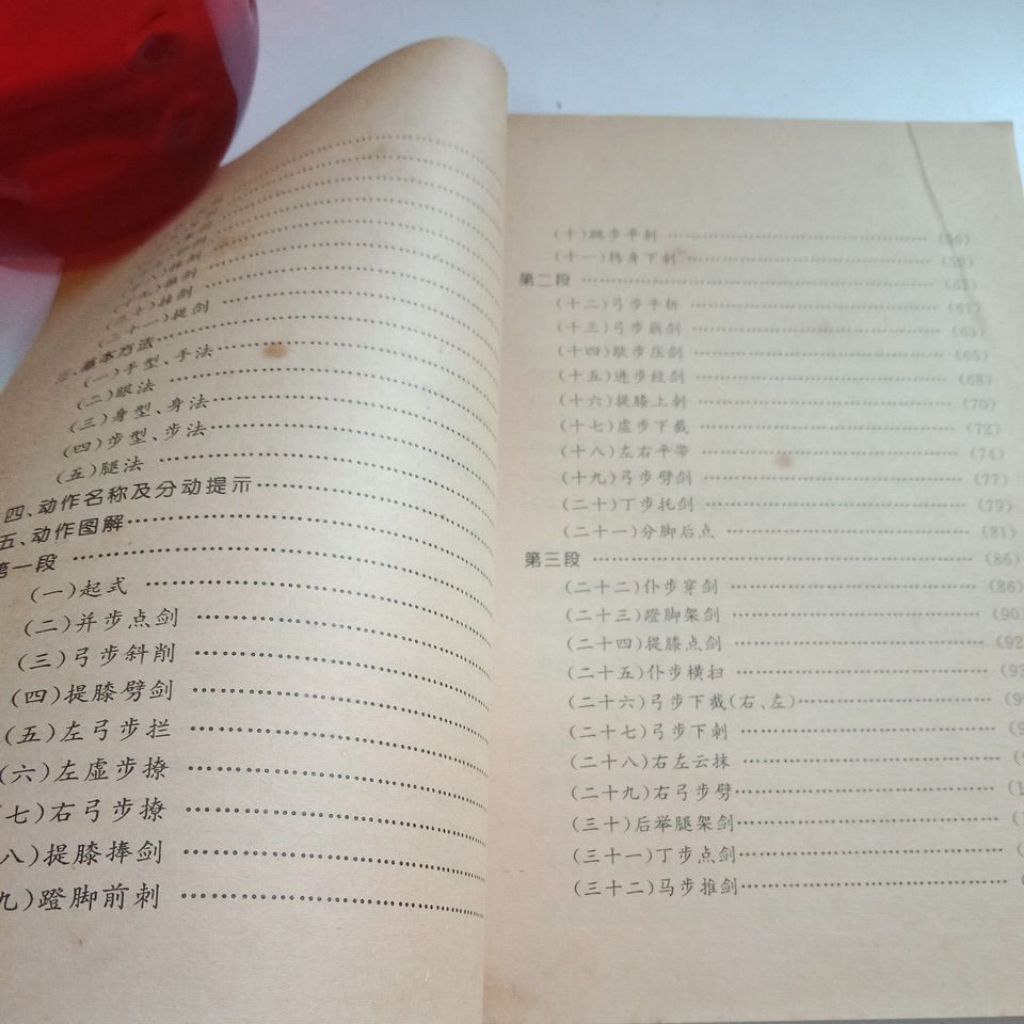 (二十一)提剑
三、基本方法
(一)手型、手法
(二)眼法
(三)身型、身法
(四)步型、步法
(五)腿法
四、动作名称及分动提示
五、动作图解
第一段
(一)起式
(二)并步点剑
(三)弓步斜削
(四)提膝劈剑
(五)左弓步拦
(六)左虚步撩
(七)右弓步撩
八)提膝捧剑
九)蹬脚前刺
(十)跳步平刺 (56)
(十一)转身下刺 (59)
第二段 (61)
(十二)弓步平斩 (61)
(十三)弓步崩剑 (63)
(十四)歇步压剑 (65)
(十五)进步绞剑 (68)
(十六)提膝上刺 (70)
(十七)虚步下截 (72)
(十八)左右平带 (74)
(十九)弓步劈剑 (77)
(二十)丁步托剑 (79)
(二十一)分脚后点 (81)
第三段 (86)
(二十二)仆步穿剑 (86)
(二十三)蹬脚架剑 (90
(二十四)提膝点剑 (92
(二十五)仆步横扫 (93
(二十六)弓步下截(右、左) (9
(二十七)弓步下刺 (9
(二十八)右左云抹
(二十九)右弓步劈 (1
(三十)后举腿架剑
(三十一)丁步点剑
(三十二)马步推剑